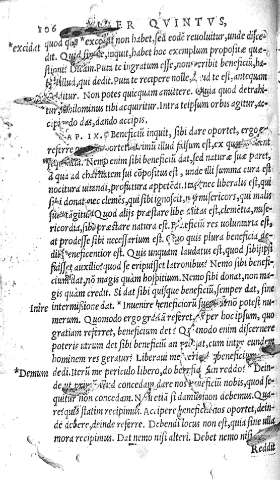 106 LIBER QVINTVS,
*excidat quod qua excogitat non habet, sed eodē reuoluitur, unde disce
dit. Quid inquit, habet hoc exemplum propositæ quæ
stioni? Dicam. Puta te ingratum esse, non peribit beneficiū, ha
illud, qui dedit. Puta te recipere nolle, apud te est, antequam
Non potes quicquam amittere. Quia quod detrahi
tur, nihilominus tibi acquiritur. Intra teipsum orbis agitur, ac
cipiendo das, dando accipis.
CAP. IX. Beneficiū inquit, sibi dare oportet, ergo
referre oportet. Primū illud falsum est, ex quo
Nemo enim sibi beneficiū dat, sed naturæ suæ paret,
a qua ad charitatem sui cōpositus est, unde illi summa cura est
nocitura uitandi, profutura appetēdi. Itaque nec liberalis est, qui
sibi donat: nec clemēs, qui sibi ignoscit: nec misericors, qui malis
suis tangitur. Quod alijs præstare liberalitas est, clemētia, mise
ricordia, sibi præstare natura est. Beneficiū res uoluntaria est,
at prodesse sibi necessarium est. Quo quis plura beneficia de
dit, beneficentior est. Quis unquam laudatus est, quod sibi ipsi
fuisset auxilio? quod se eripuisset latronibus? Nemo sibi benefi
cium dat, nō magis quàm hospitium. Nemo sibi donat, non ma
gis quàm credit. Si dat sibi quisque beneficiū, semper dat, sine
Inire intermissione dat. *Inuenire beneficiorū suorum nō potest nu
merum. Quomodo ergo gratiā referet, cum per hoc ipsum, quo
gratiam referret, beneficium det? Quomodo enim discernere
poteris utrum det sibi beneficiū an reddat, cum intra eundē
hominem res geratur? Liberaui me periculo, beneficium
*Demum dedi. Iterū me periculo libero, do beneficiū, an reddo? *Dein
de ut primū illud concedam, dare nos beneficiū nobis, quod se
quitur non concedam. Nam etiā si damus, non debemus. Qua
re? quia statim recipimus. Accipere beneficium oportet, dein
de debere, deinde referre. Debendi locus non est, quia sine ulla
mora recipimus. Dat nemo nisi alteri. Debet nemo nisi
Reddit